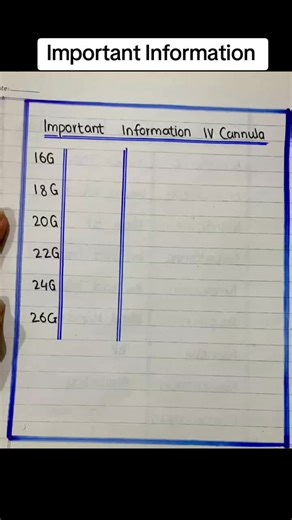 Important Information
ate:
Important Information IV Cannula
16G
18G
20G
22G
24G
26G